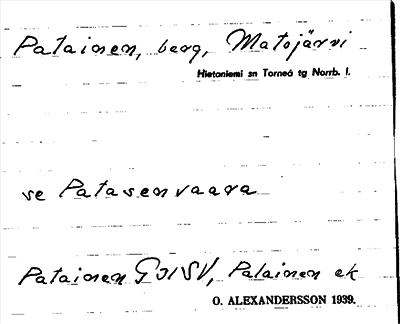 Patainen, berg, Matojärvi
Hietaniemi sn Torneå tg Norrb. l.
se Patasenvaara
Patainen GJ1SV, Patainen ek
O. ALEXANDERSSON 1939.